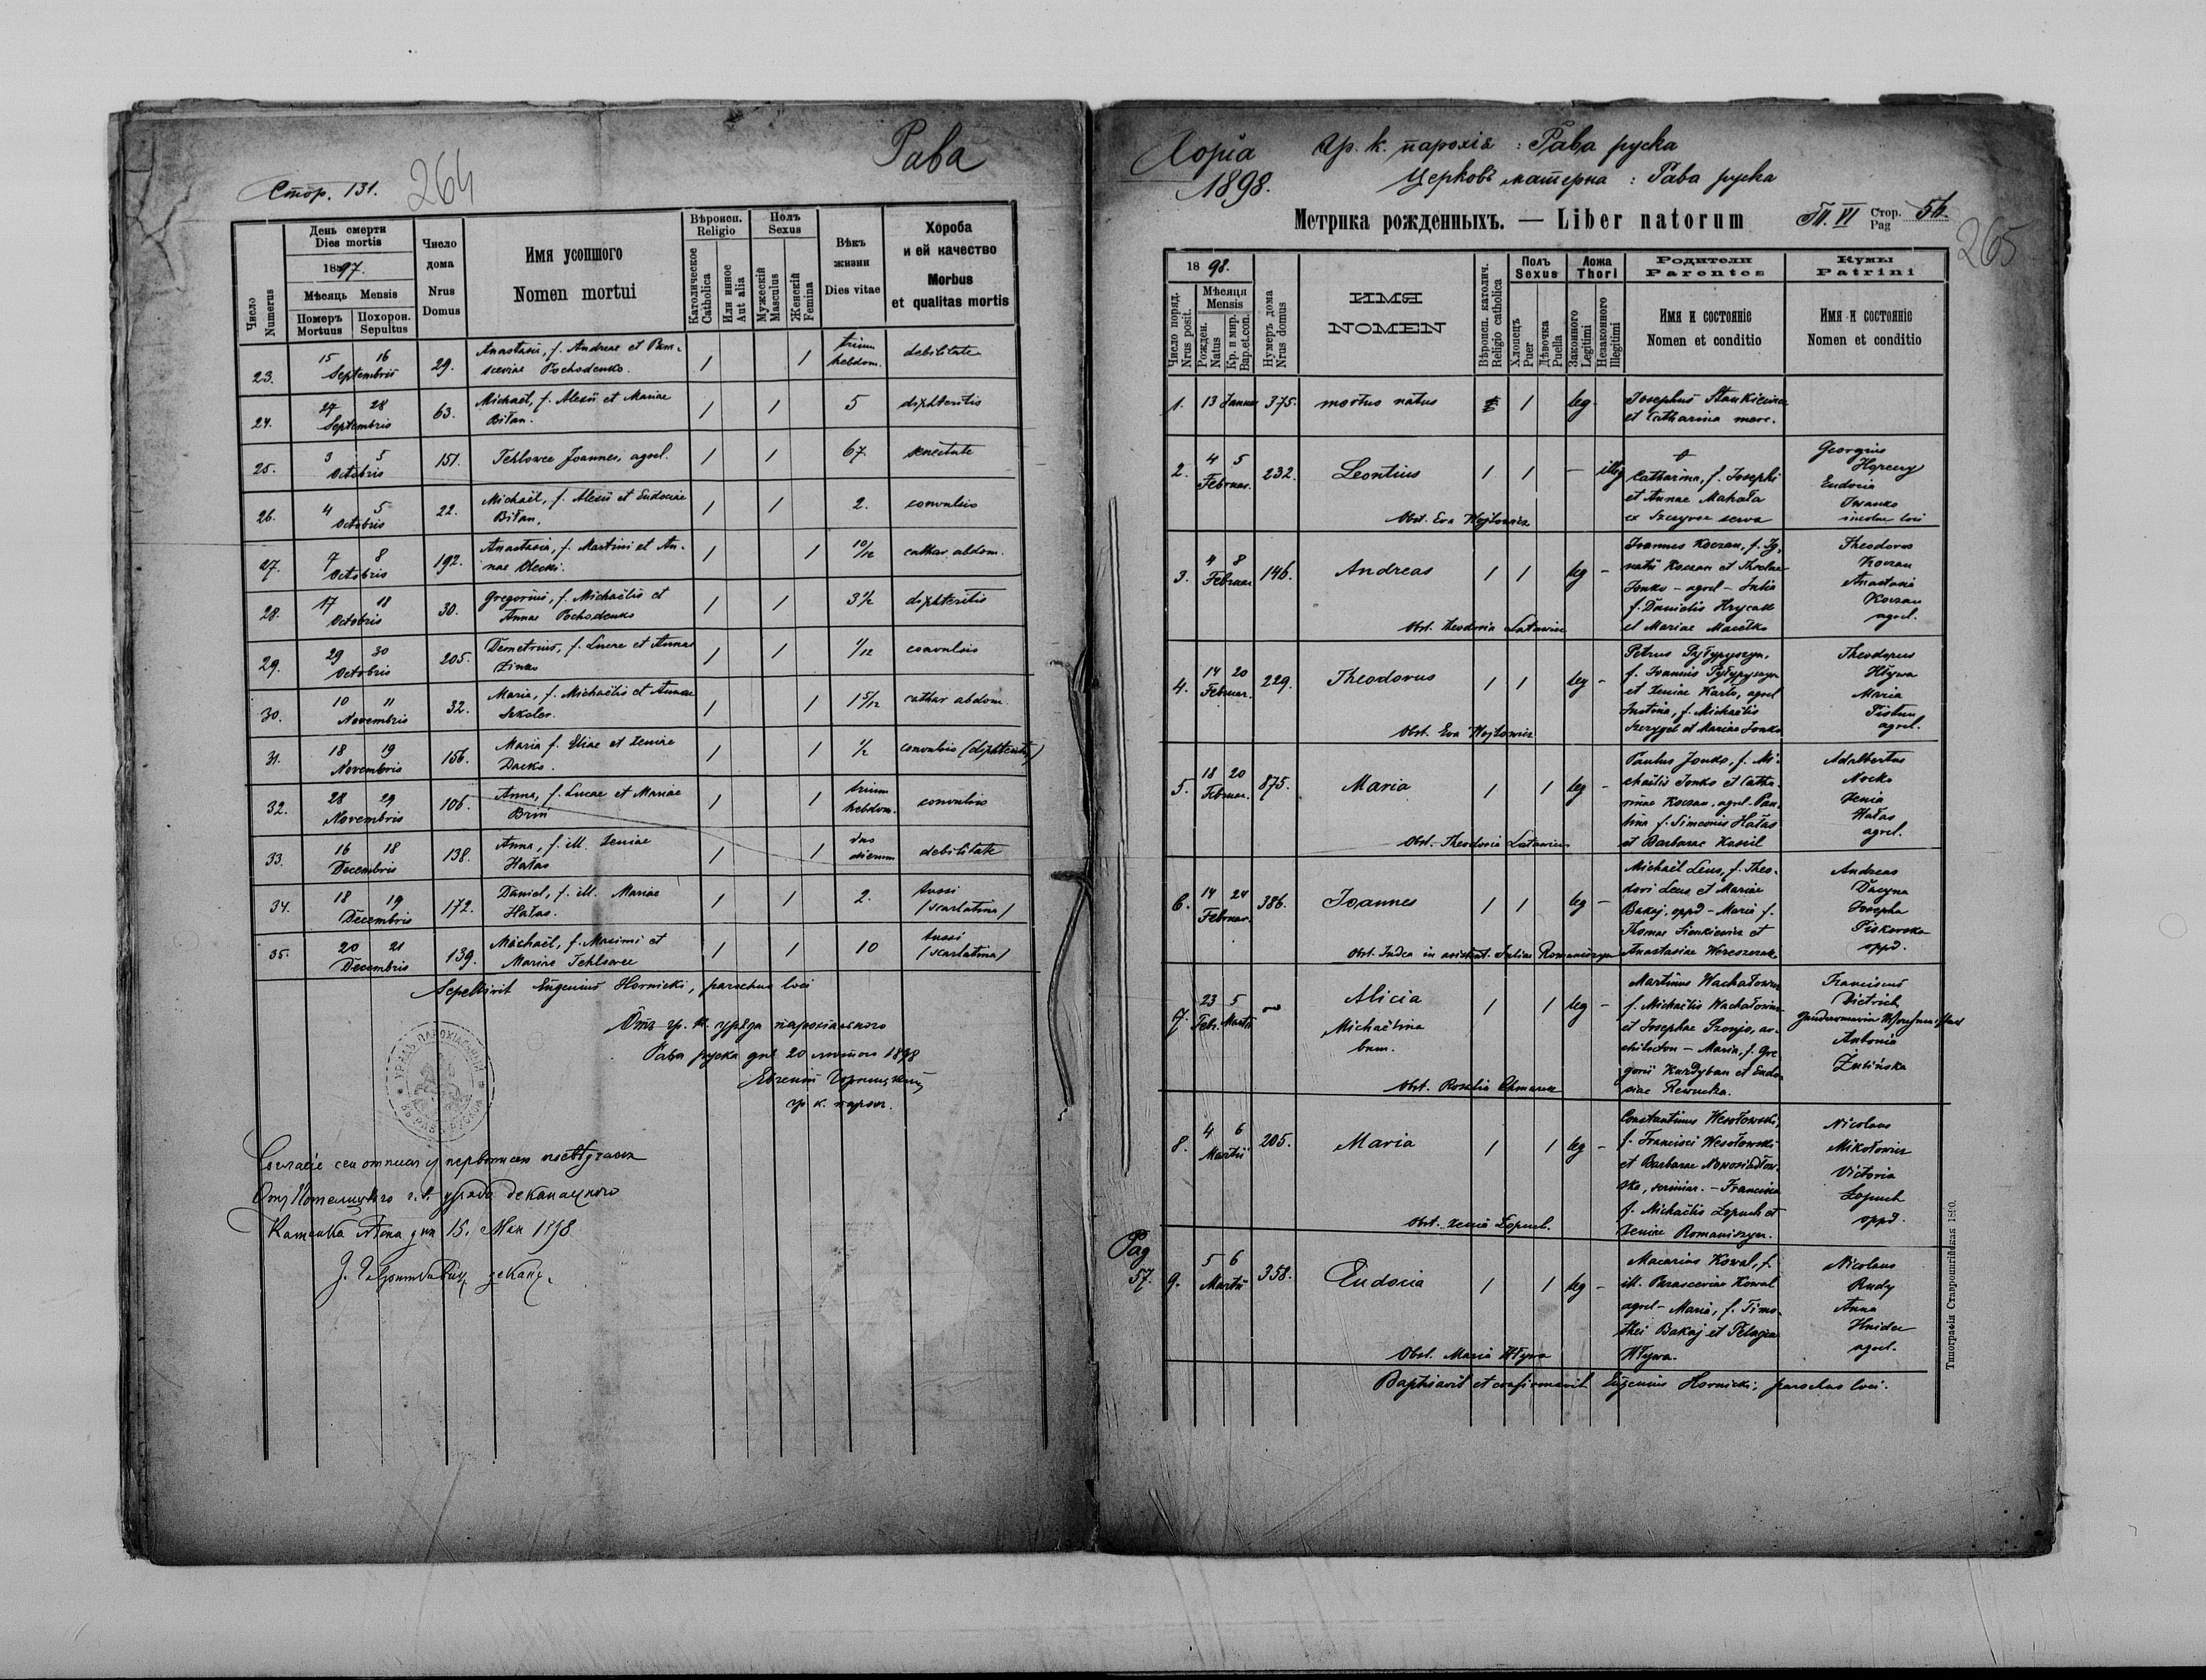 Рава
Стор. 131.
264
Число
Numerus
День смерти
Dies mortis
1897.
Мѣсяць Mensis
Померъ
Mortuus
Похорон.
Sepultus
Число
дома
Nrus
Domus
Имя усопшого
Nomen mortui
Вѣроисп.
Religio
Католическое
Catholica
Или инное
Aut alia
Полъ
Sexus
Мужескій
Masculus
Женскій
Femina
Вѣкъ
жизни
Dies vitae
Хороба
и ей качество
Morbus
et qualitas mortis
23. 15 16 Septembris 29. Anastasia, f. Andreae et Paras- 1 1 trium
sceviae Pochodenko. hebdom. debilitate
24. 27 28 Septembris 63. Michaël, f. Alexii et Mariae 1 1 5 diphteritis
Biłan.
25. 3 5 Octobris 151. Tehlowec Joannes, agrel. 1 1 67 senectute
26. 4 5 Octobris 22. Michaël, f. Alexii et Eudociae 1 1 2. convulsio
Biłan.
27. 7 8 Octobris 192. Anastasia, f. Martini et An- 1 1 10/12 cathar. abdom.
nae Olecki.
28. 17 18 Octobris 30. Gregorius, f. Michaëlis et 1 1 3½ diphteritis
Annae Pochodenko
29. 29 30 Octobris 205. Demetrius, f. Lucae et Annae 1 1 1/12 convulsio
30. 10 11 Novembris 32. Maria, f. Michaëlis et Annae 1 1 1 5/12 cathar abdom.
Szkoler.
31. 18 19 Novembris 156. Maria f. Eliae et Xeniae 1 1 ½ convulsio (diphteritis)
Dacko.
32. 28 29 Novembris 106. Anna, f. Lucae et Mariae 1 1 trium
Brin hebdom. convulsio
33. 16 18 Decembris 138. Anna, f. ill. Xeniae 1 1 duo
Hałas dierum debilitate
34. 18 19 Decembris 172. Daniel, f. ill. Mariae 1 1 2. tussi
Hałas. /scarlatina/
35. 20 21 Decembris 139. Michaël, f. Maximi et 1 1 10 tussi
Mariae Tehlowec /scarlatina/
Sepelivit Eugenius Hornicki, parochus loci
Отъ гр. к. уряда парохіального
Рава руска дня 20 лютого 1898
Евгеній Горницкій
гр. к. парох.
Отъ Потелицкого г. к. уряду деканального
15. Мая 1898
декан.
Копія
1898.
Гр. к. парохія : Рава руска
Церковь матерна : Рава руска
Метрика рожденныхъ. — Liber natorum
Т. VI Стор.
Pag 56.
265
1898.
Число поряд.
Nrus posit.
Мѣсяця
Mensis
Рожден.
Natus
Кр. и мир.
Bap.et.con.
Нумеръ дома
Nrus domus
ИМЯ
NOMEN
Вѣроисп. католич.
Religio catholica
Полъ
Sexus
Хлопецъ
Puer
Дѣвочка
Puella
Ложа
Thori
Законного
Legitimi
Незаконного
Illegitimi
Родители
Parentes
Имя и состояніе
Nomen et conditio
Кумы
Patrini
Имя и состояніе
Nomen et conditio
1. 13 Januar 375. mortuo natus 1 leg. Josephus Stankiewicz
et Catharina merc.
2. 4 5 Februar. 232. Leontius 1 1 – illeg.
Catharina, f. Josephi
et Annae Mahała
ex Szczyrec serva
Obst. Eva Wojtowicz
Georgius
Horeczy
Eudocia
Iwanko
incolae loci
3. 4 8 Februar. 146. Andreas 1 1 leg –
Joannes Koczan, f. Ig-
natii Koczan et Theclae
Jonko - agrel - Julia
f. Danielis Hrycak
et Mariae Maciełko
Obst. Theodosia Latawiec
Theodorus
Koczan
Anastasia
Koczan
agrel.
4. 14 20 Februar. 229. Theodorus 1 1 leg –
Petrus Pyłypyszyn,
f. Joannis Pyłypyszyn
et Xeniae Karło, agrel
Justina, f. Michaëlis
Szczygel et Mariae Jonko
Obst. Eva Wojtowicz
Theodorus
Hływa
Maria
Pistun
agrel.
5. 18 20 Februar. 875. Maria 1 1 leg –
Paulus Jonko, f. Mi-
chaëlis Jonko et Catha-
rinae Koczan, agrel. Pau-
lina f. Simeonis Hałas
et Barbarae Kassil
Obst. Theodosia Latawiec
Adalbertus
Nocko
Xenia
Hałas
agrel.
6. 14 24 Februar. 386. Joannes 1 1 leg –
Michaël Leus, f. Theo-
dori Leus et Mariae
Bakaj, oppd - Maria f.
Thomae Sienkiewicz et
Anastasiae Wereszczak
Obst. Judea in assistent. Juliae Romaniszyn
Andreas
Dacyna
Josepha
Piskorska
oppd.
7. 23 Febr. 5 Martii Alicia 1 1 leg –
Michaëlina
bnm.
Martinus Wachałowicz
f. Michaëlis Wachałowicz
et Josephae Szonjo, ar-
chitecton – Maria, f. Gre-
gorii Kurdyban et Eudo-
xiae Rewucka.
Obst. Rosalia Chmarek
Franciscus
Dietrich
Antonia
Zubińska
8. 4 6 Martii 205. Maria 1 1 leg –
Constantinus Wesołowski,
f. Francisci Wesołowski
et Barbarae Nowosiadłow-
ska, scriniar. – Francisca
f. Michaëlis Łopuch et
Xeniae Romaniszyn.
Obst. Xenia Łopuch.
Nicolaus
Mikołowicz
Victoria
Łopuch
oppd.
Pag
57. 9. 5 6 Martii 358. Eudocia 1 1 leg –
Macarius Kowal, f.
ill. Parasceviae Kowal
agrel – Maria, f. Timo-
thei Bakaj et Pelagiae
Hływa.
Obst. Maria Hływa
Nicolaus
Rudy
Anna
Hnidec
agrel.
Baptisavit et confirmavit Eugenius Hornicki, parochus loci.
Типографія Ставропигійская 1890.